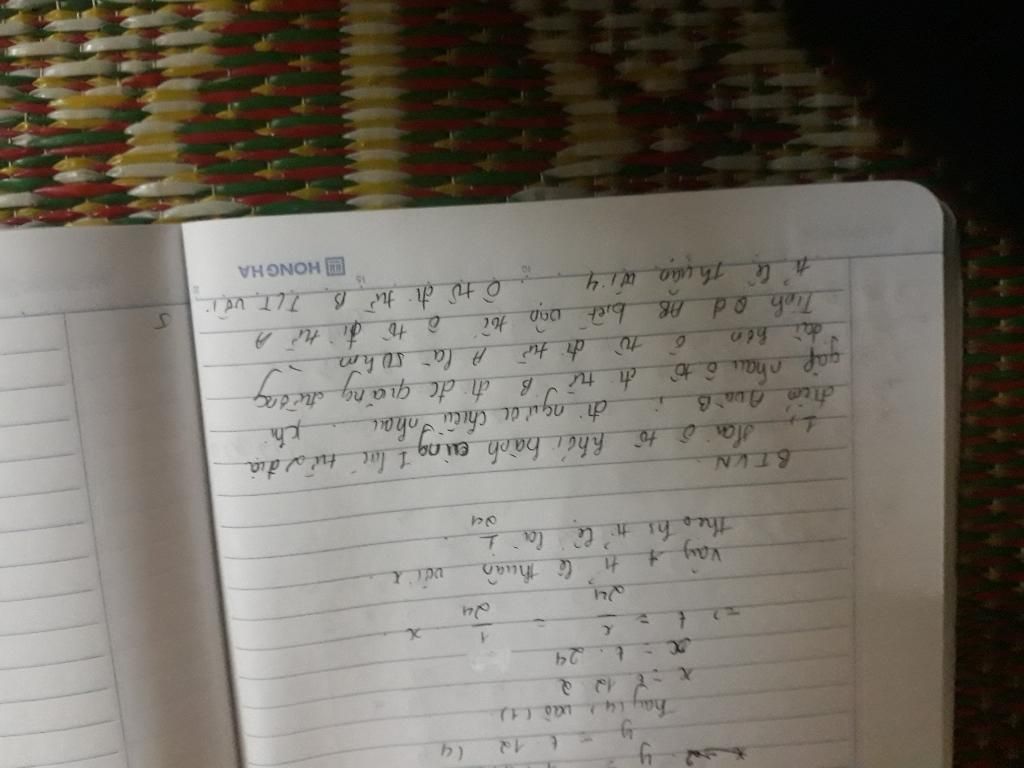 y = t. 12 (4
Thay (4) vào (1)
x = t 12 2
x = t. 24
=> t = x/24 = 1/24 x
Vậy t tỉ lệ thuận với x
theo hs tỉ lệ là 1/24
BTVN
1, Hai ô tô khởi hành cùng 1 lúc từ 2 địa
điểm A và B, đi ngược chiều nhau. Khi
gặp nhau ô tô đi từ B đi đc quãng đường
dài hơn ô tô đi từ A là 50 km
Tính Qđ AB biết vận tốc ô tô đi từ A
tỉ lệ thuận với 4 Ô tô đi từ B TLT với
5
HONG HA